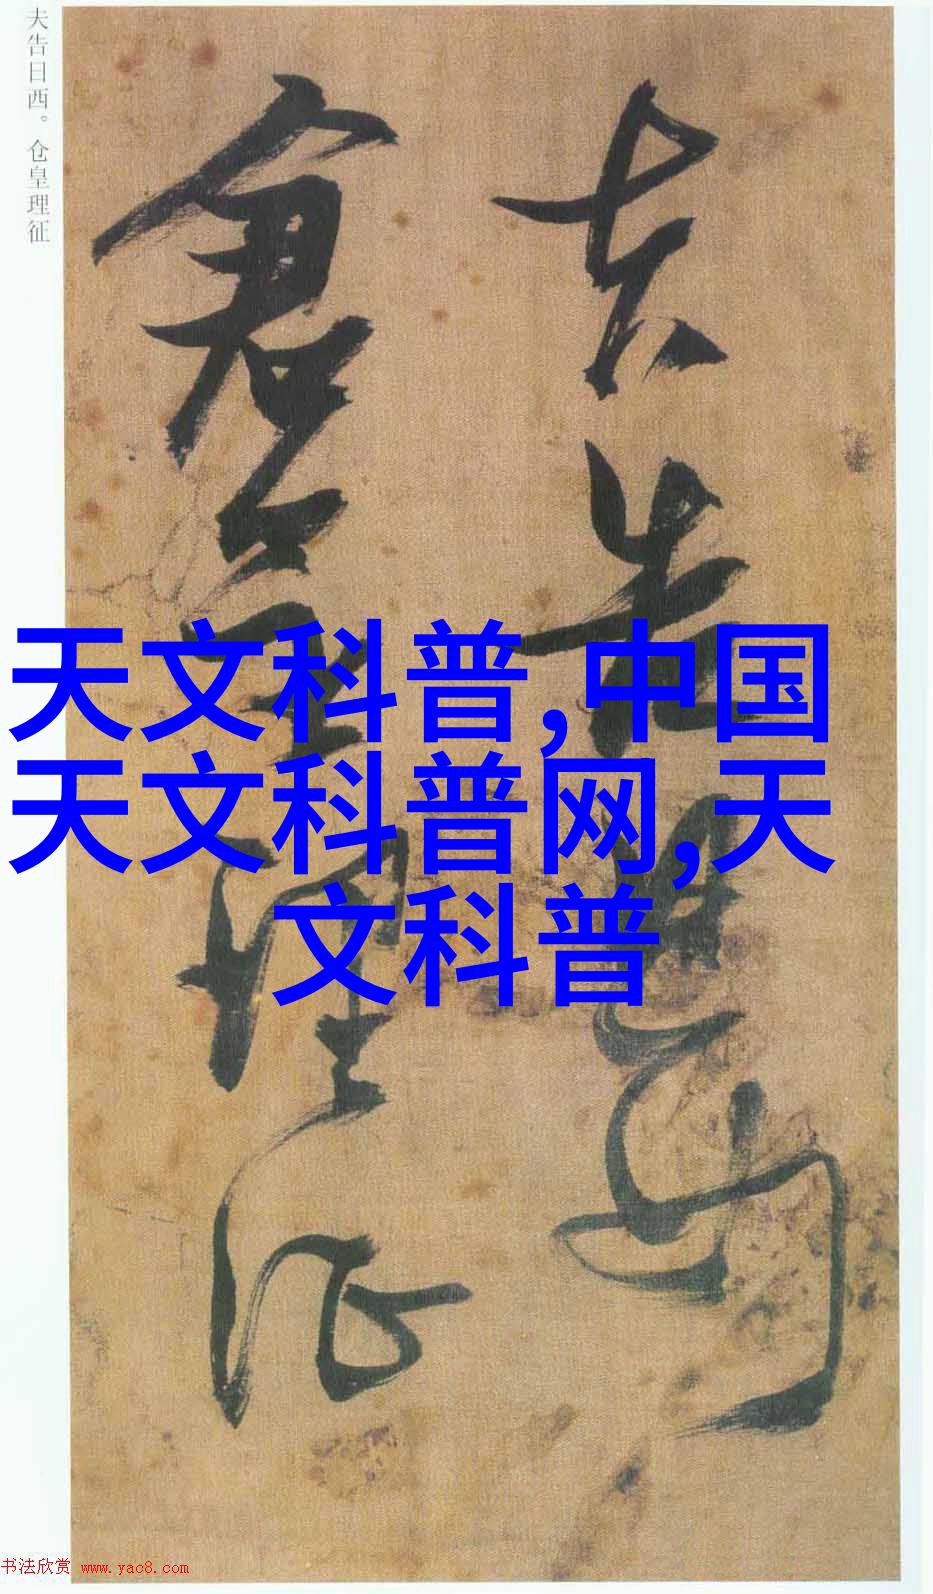 夫告日西。仓皇理征
夫告日西
倉皇理征
天文科普,中国
天文科普网,天
文科普
书法欣赏 www.yac8.com